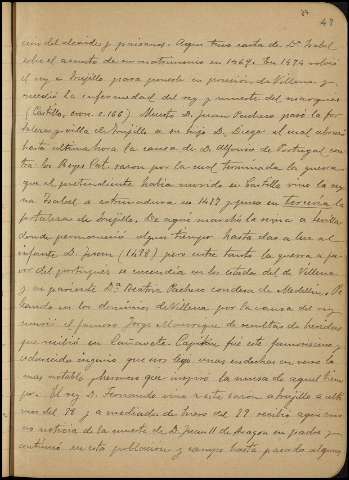 43
cion del alcaide y paisanos. Aqui tuvo carta de Dª Isabel
sobre el asunto de su matrimonio en 1469. En 1474 volvió
el rey a Trujillo para ponerle en posesion de Villena y
sucedió la enfermedad del rey y muerte del marques
(Castillo, cron. c. 166) Muerto D. Juan Pacheco pasó la for-
taleza y villa de Trujillo a su hijo D. Diego el cual abrazó
hasta ultima hora la causa de D. Alfonso de Portugal con-
tra los Reyes Cat. razon por la cual terminada la guerra
que el pretendiente habia movido en Castilla vino la rey-
na Isabel a extremadura en 1477 y puso en terceria la
fortaleza de Trujillo. De aqui marchó la reina a Sevilla
donde permaneció algun tiempo hasta dar a luz al
infante D. Juan (1478) pero entre tanto la guerra a fa-
vor del portugues se encendia en los estados del de Villena
y su pariente Dª Beatriz Pacheco condesa de Medellin. Pe-
leando en los dominios de Villena por la causa del rey
murió el famoso Jorge Manrique de resultas de heridas
que recibió en Cañavete. Capitan fué este famosisimo y
esclarecido ingenio que nos legó unas endechas en verso lo
mas notable y hermoso que inspiró la musa de aquel tiem-
po. El rey D. Fernando vino a esta sazon a Trujillo a ulti-
mos del 78 y a mediados de Enero del 79 recibió aqui mis-
mo noticia de la muerte de D. Juan II de Aragon su padre y
continuó en esta poblacion y campo hasta pasado algun